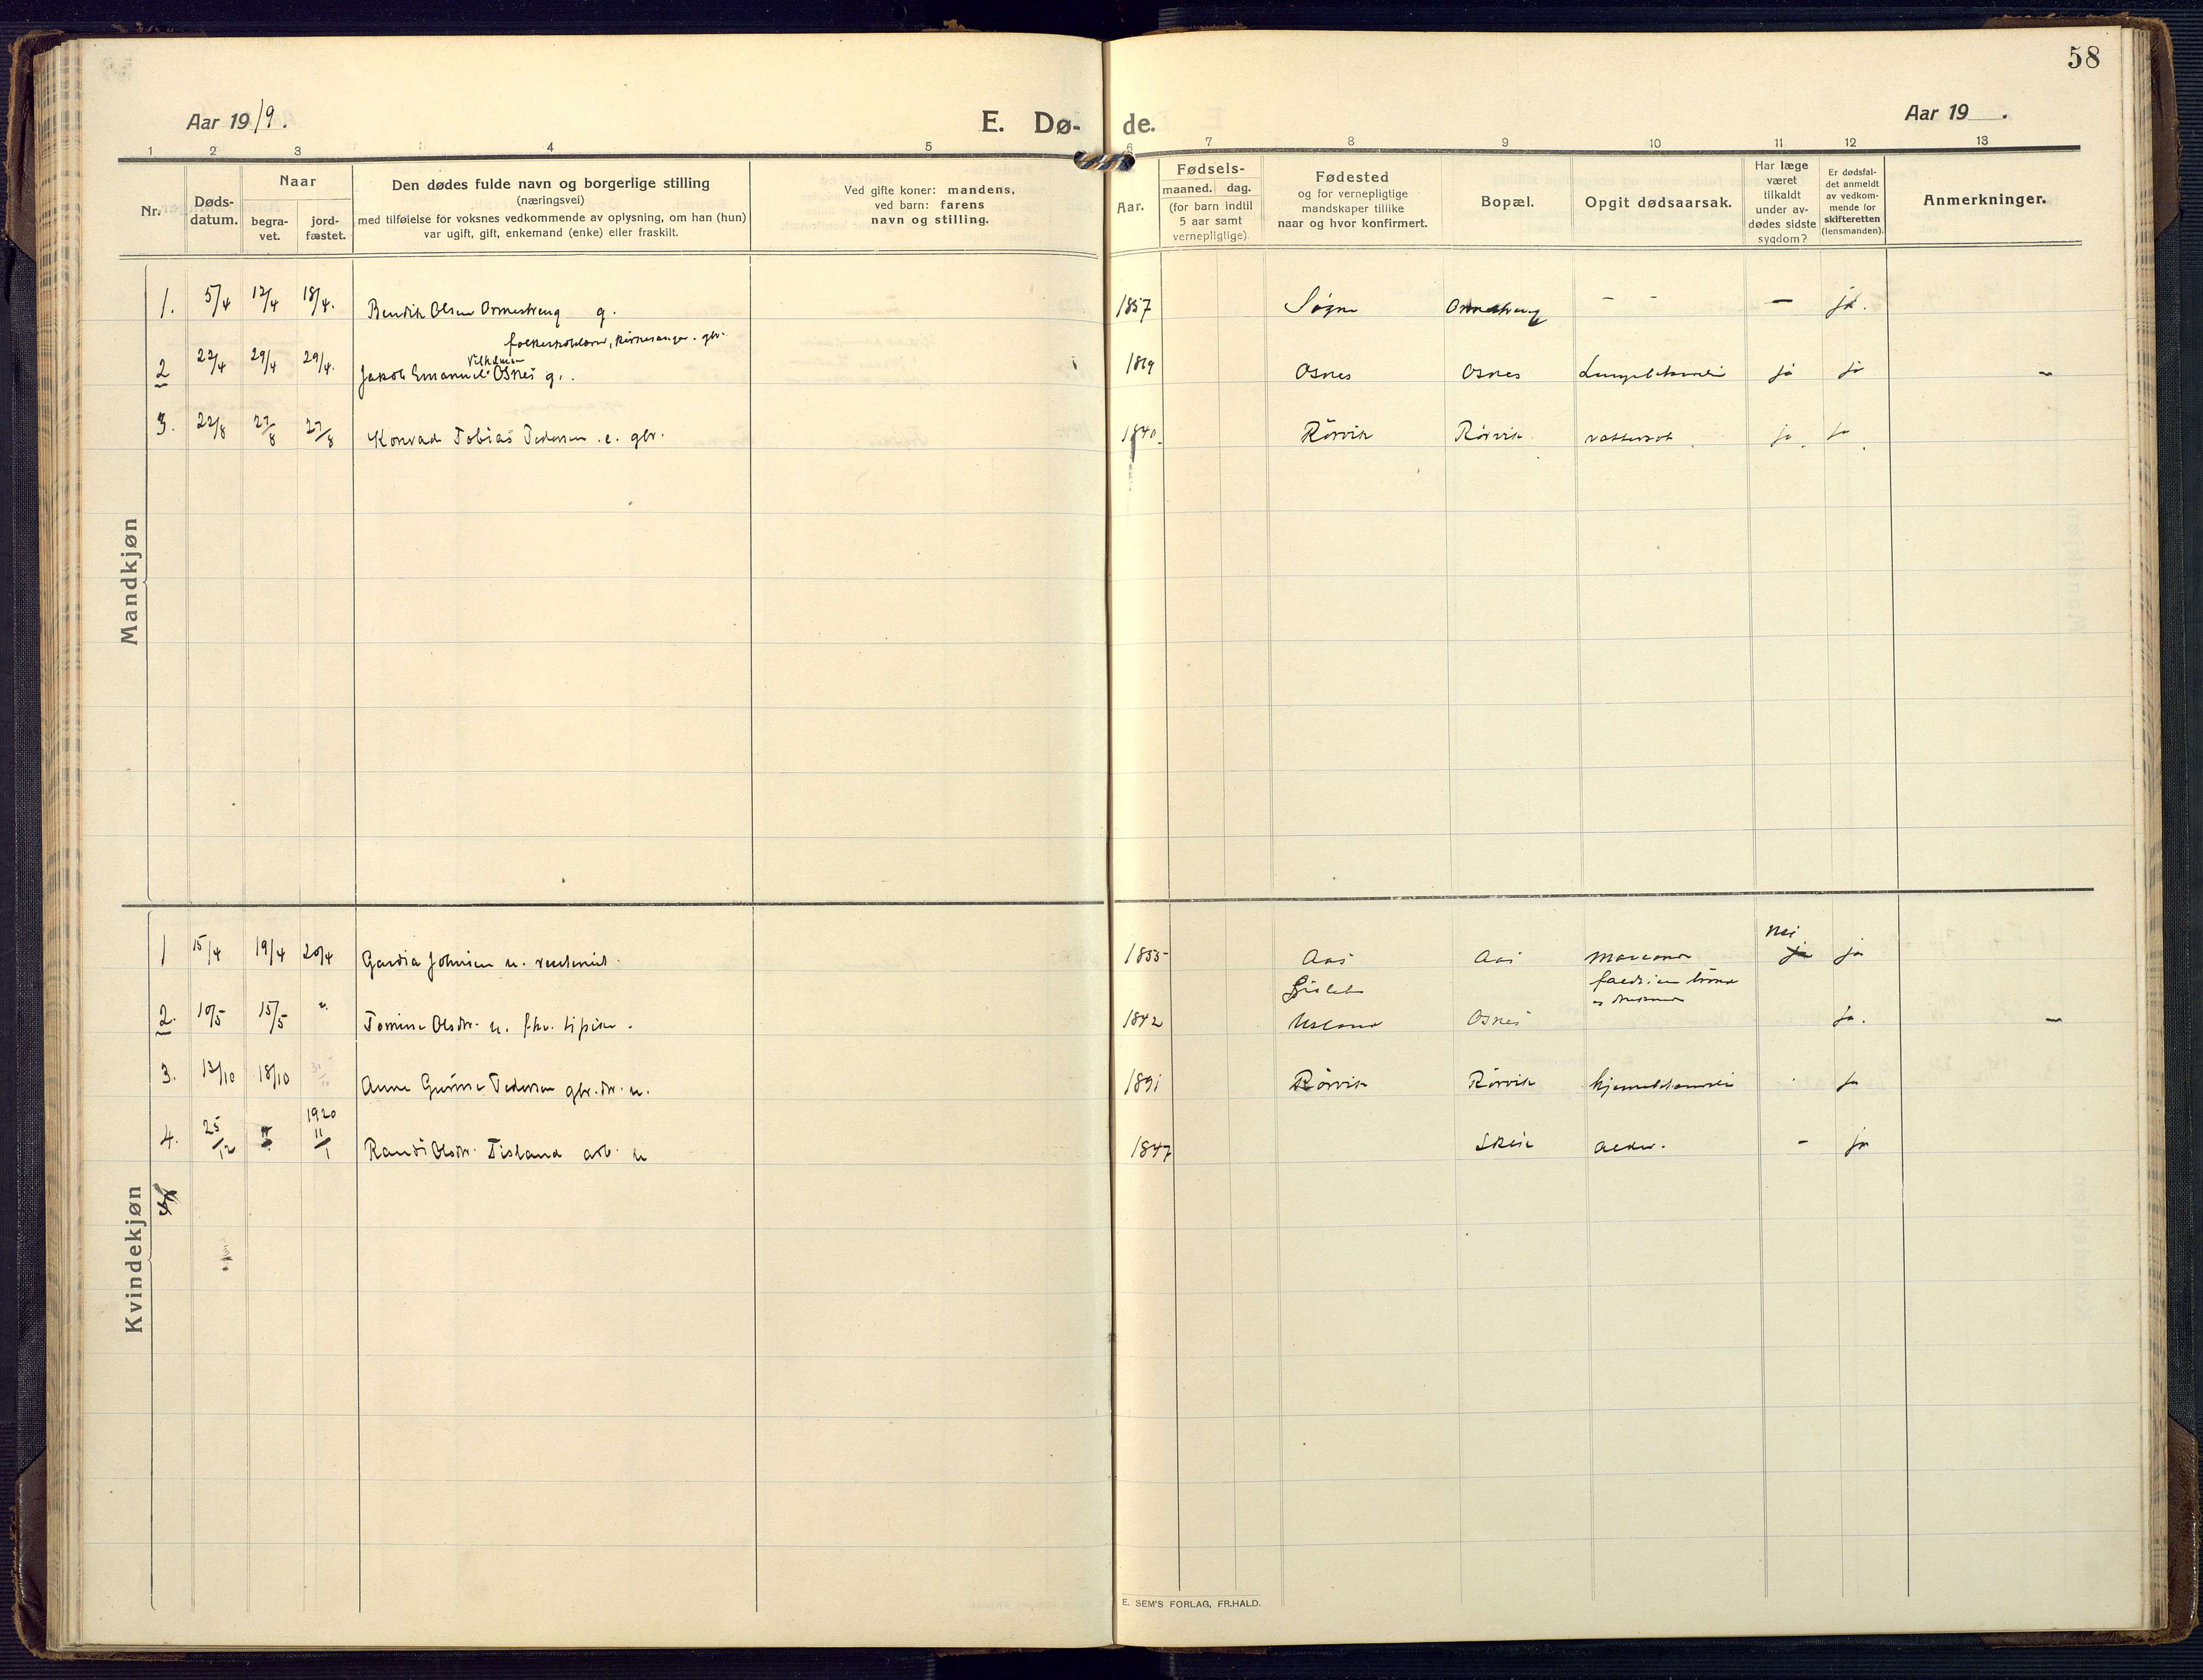 58
Aar 1919.
E. Dø-
de.
Aar 19 .
1 2 3 4 5 6 7 8 9 10 11 12 13
Nr.
Døds-
datum.
Naar
begra-
vet.
jord-
fæstet.
Den dødes fulde navn og borgerlige stilling
(næringsvei)
med tilføielse for voksnes vedkommende av oplysning, om han (hun)
var ugift, gift, enkemand (enke) eller fraskilt.
Ved gifte koner: mandens,
ved barn: farens
navn og stilling.
Aar.
Fødsels-
maaned. dag.
(for barn indtil
5 aar samt
vernepligtige).
Fødested
og for vernepligtige
mandskaper tillike
naar og hvor konfirmert.
Bopæl.
Opgit dødsaarsak.
Har læge
været
tilkaldt
under av-
dødes sidste
sygdom?
Er dødsfal-
det anmeldt
av vedkom-
mende for
skifteretten
(lensmanden).
Anmerkninger.
Mandkjøn
1. 5/4 12/4 18/4. Bendik Olsen Ormestreng g. 1857 Søgne Ormestreng - - - ja.
folkeskolelærer, kirkesanger. gbr.
Vilhelm
2 22/4 29/4 29/4. Jakob Emanuel Osnes g. 1869 Osnes Osnes Lungebetændelse ja ja -
3. 22/8 27/8 27/8 Konrad Tobias Pedersen .e. gbr. 1840. Rørvik Rørvik vattersot. ja. ja.
Kvindekjøn
nei
1 15/4 19/4 20/4 Johnsen u. 1835 Aas Aas ja ja
2. 10/5 15/5 " Tomine Olsdtr. u. fhv. tjpike. 1842 Usland Osnes ja. -
3. 13/10 18/10 Anne Gurine Pedersen gbr. dr. u. 1891 Rørvik Rørvik ja
1920
4. 25/12 11/1 Randi Olsdtr. Tisland arb. u 1847 Skeie - ja
E. SEM'S FORLAG, FR.HALD.